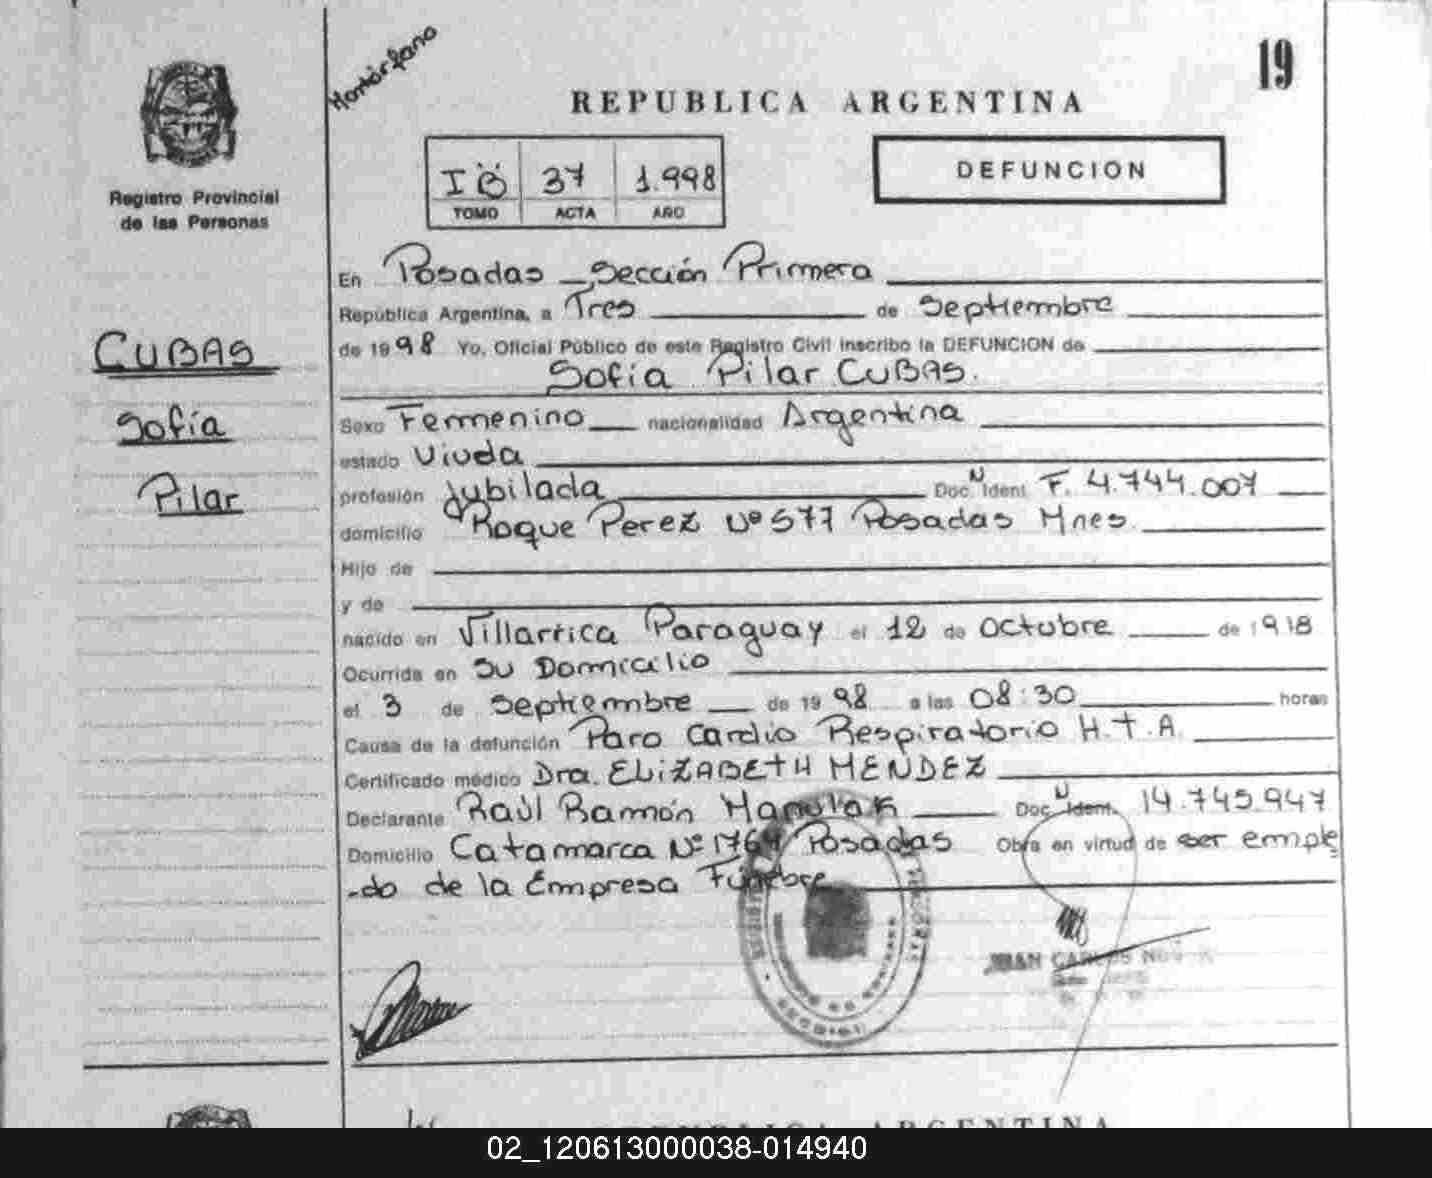 19
REPUBLICA ARGENTINA
Registro Provincial
de las Personas
I B 37 1.998
TOMO ACTA AÑO
DEFUNCION
CUBAS
Sofía
Pilar
En Posadas Sección Primera
República Argentina, a Tres de Septiembre
de 1998 Yo, Oficial Público de este Registro Civil inscribo la DEFUNCION de
Sofía Pilar CUBAS.
Sexo Femenino nacionalidad Argentina
estado Viuda
profesión Jubilada Doc. N Ident F. 4.744.007
domicilio Roque Perez Nº 577 Posadas Mnes.
Hijo de
y de
nacido en Villarrica Paraguay el 12 de Octubre de 1918
Ocurrida en Su Domicilio
el 3 de Septiembre de 1998 a las 08:30 horas
Causa de la defunción Paro Cardio Respiratorio H.T.A.
Certificado médico Dra. ELIZABETH MENDEZ
Declarante Raúl Ramón Doc. N Ident. 14.745.947
Domicilio Catamarca Nº Posadas Obra en virtud de ser emple
-do de la Empresa Fúnebre
JUAN CARLOS
REPUBLICA ARGENTINA
02_120613000038-014940